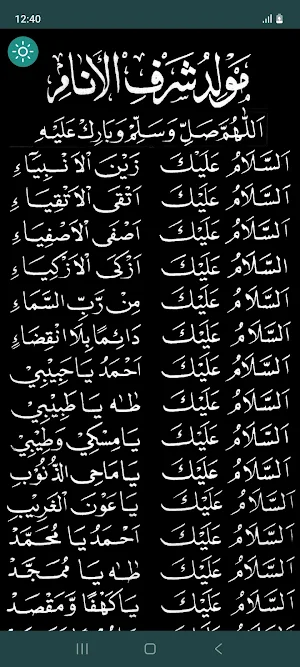 12:40
مَوْلِدُ شَرَفِ الْأَنَامِ
اَللّٰهُمَّ صَلِّ وَسَلِّمْ وَبَارِكْ عَلَيْهِ
اَلسَّلَامُ عَلَيْكَ زَيْنَ الْاَنْبِيَاءِ
اَلسَّلَامُ عَلَيْكَ اَتْقَى الْاَتْقِيَاءِ
اَلسَّلَامُ عَلَيْكَ اَصْفَى الْاَصْفِيَاءِ
اَلسَّلَامُ عَلَيْكَ اَزْكَى الْاَزْكِيَاءِ
اَلسَّلَامُ عَلَيْكَ مِنْ رَّبِّ السَّمَاءِ
اَلسَّلَامُ عَلَيْكَ دَائِمًا بِلَا انْقِضَاءِ
اَلسَّلَامُ عَلَيْكَ اَحْمَدُ يَا حَبِيْبِيْ
اَلسَّلَامُ عَلَيْكَ طٰهٰ يَا طَبِيْبِيْ
اَلسَّلَامُ عَلَيْكَ يَا مِسْكِيْ وَطِيْبِيْ
اَلسَّلَامُ عَلَيْكَ يَا مَاحِي الذُّنُوْبِ
اَلسَّلَامُ عَلَيْكَ يَا عَوْنَ الْغَرِيْبِ
اَلسَّلَامُ عَلَيْكَ اَحْمَدُ يَا مُحَمَّدْ
اَلسَّلَامُ عَلَيْكَ طٰهٰ يَا مُمَجَّدْ
اَلسَّلَامُ عَلَيْكَ يَا كَهْفًا وَّمَقْصَدْ